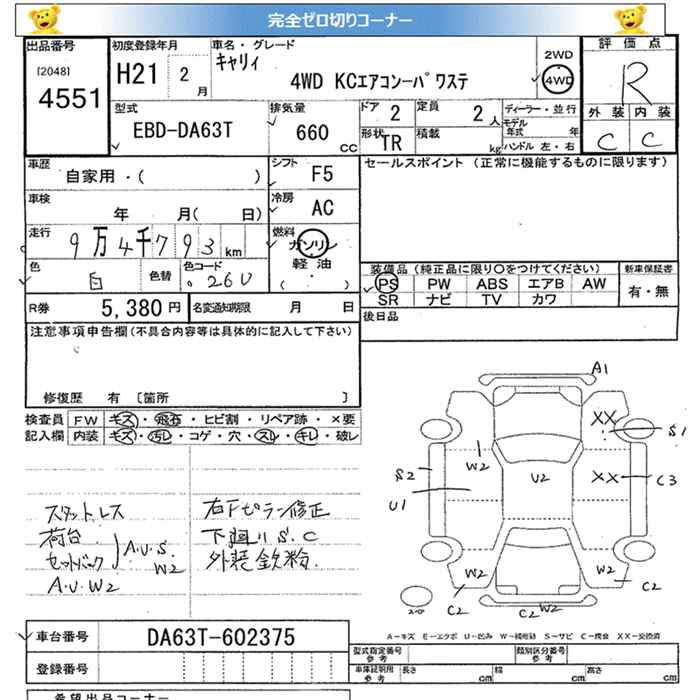 完全ゼロ切りコーナー
出品番号 初度登録年月 車名・グレード 評価点
[2048] 4551 H21 2 月 キャリィ 4WD KCエアコンーパワステ 2WD 4WD R
型式 排気量 ドア 2 定員 2 人 ディーラー・並行 外装 内装
EBD-DA63T 660 cc 形状 TR 積載 kg モデル年式 年 C C
ハンドル 左・右
車歴 シフト セールスポイント (正常に機能するものに限ります)
自家用・( ) F5
車検 冷房
年 月( 日) AC
走行 燃料
9万4千793 km ガソリン
軽油
( ・ )
色 白 色替 色コード 26U
装備品 (純正品に限り〇をつけてください) 新車保証書
PS PW ABS エアB AW 有・無
SR ナビ TV カワ
R券 5,380円 名変通知期限 月 日 後日品
注意事項申告欄 (不具合内容等は具体的に記入して下さい)
修復歴 有 [箇所 ]
検査員 FW キズ・飛石・ヒビ割・リペア跡・×要
記入欄 内装 キズ・汚レ・コゲ・穴・スレ・キレ・破レ
スタットレス
荷台
セットバック } A.U.S. W2
A.U.W2
右Fピラー修正
下廻りS.C
外装鉄粉.
A1
XX S1
W2 U2 XX C3
S2
U1
W2 W2
C2 C2
C2 W2
A-キズ E-エクボ U-凹み S-サビ C-腐食 XX-交換済
車台番号 DA63T-602375
型式指定番号 参考 類別区分番号 参考
登録番号 車庫証明用 参考 長さ cm 幅 cm 高さ cm
希望出品コーナー